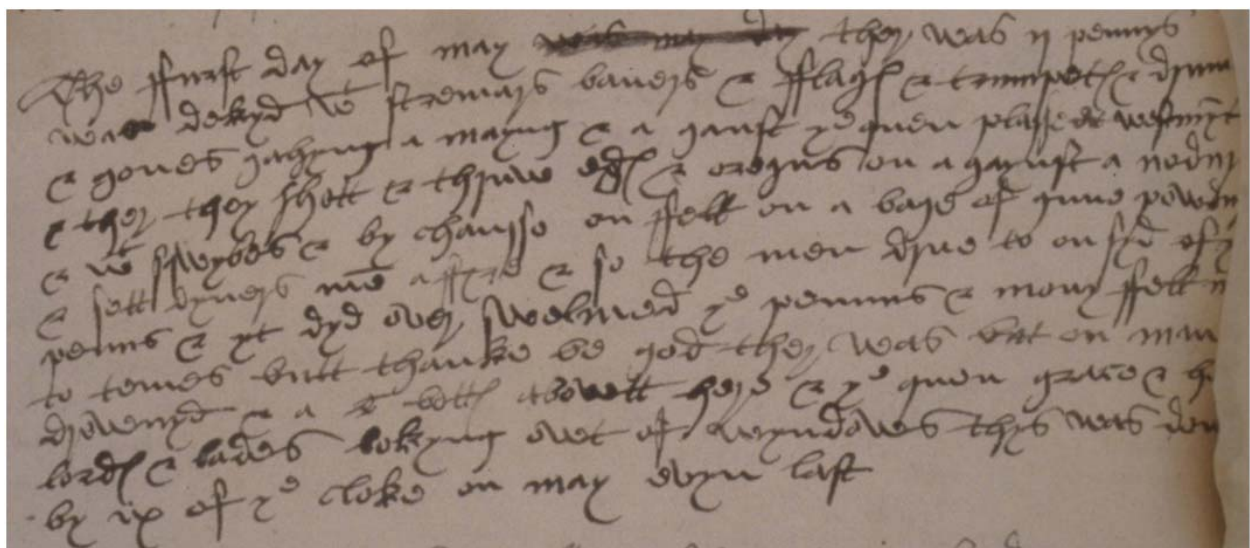 The ffurst day of may was may day they was ij pennys
was dekyd wt stremars baners & fflages & trumpetes & drum
& gones gahyng a mayng & a ganst ye quen plasse at westmynt
& ther they shott & thruw eges & oregns on a gaynst a nodur
& wt sqwybes & by chansse on fell on a bage of gune powdur
& sett dyvers men a ffyre & so the men drue to on syd of ye
penns & yt dyd over swelmed ye penns & mony fell in
to temes butt thanke be god they was but on man
drownyd & a C bottes abowtt here & ye quen grace & her
lordes & lades lokyng owt of wyndows thys was don
by ix of ye cloke on may evyn last